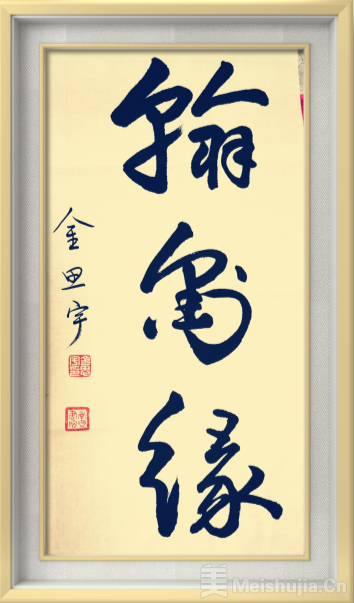 翰墨缘
金思宇
美 Meishujia.Cn